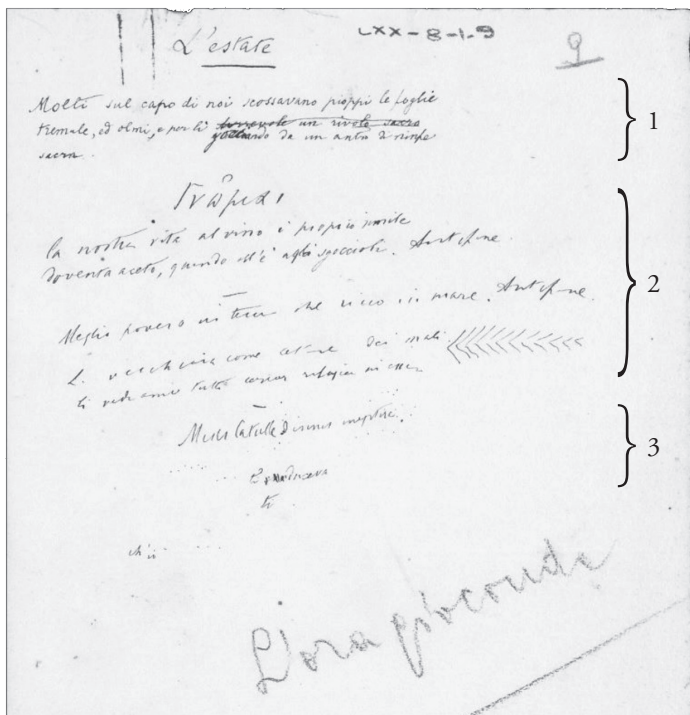 L'estate
LXX-8-1-9
9
Molti sul capo di noi scossavano pioppi le foglie
tremule, ed olmi, e por lì torrevole un rivolo sacro
gocciando da un antro di ninfe
sacra.
1
Γνῶμαι
la nostra vita al vino è proprio simile
doventa aceto, quando all'è agli sgoccioli. Antifane.
2
Meglio povero in terra che ricco in mare. Antifane.
L. vecchiaia come altare dei mali
li vediamo tutti cercar rifugio in essa
Miser Catulle desinas ineptire.
3
ti
ch'ii
L'ora gioconda